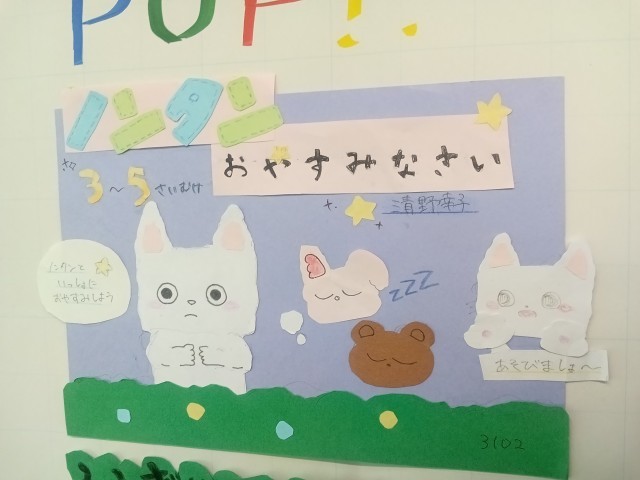 POP!!
ノンタン
おやすみなさい
3〜5さいむけ
清野幸子
ノンタンと
いっしょに
おやすみしよう
zzz
あそびましょ〜
3102